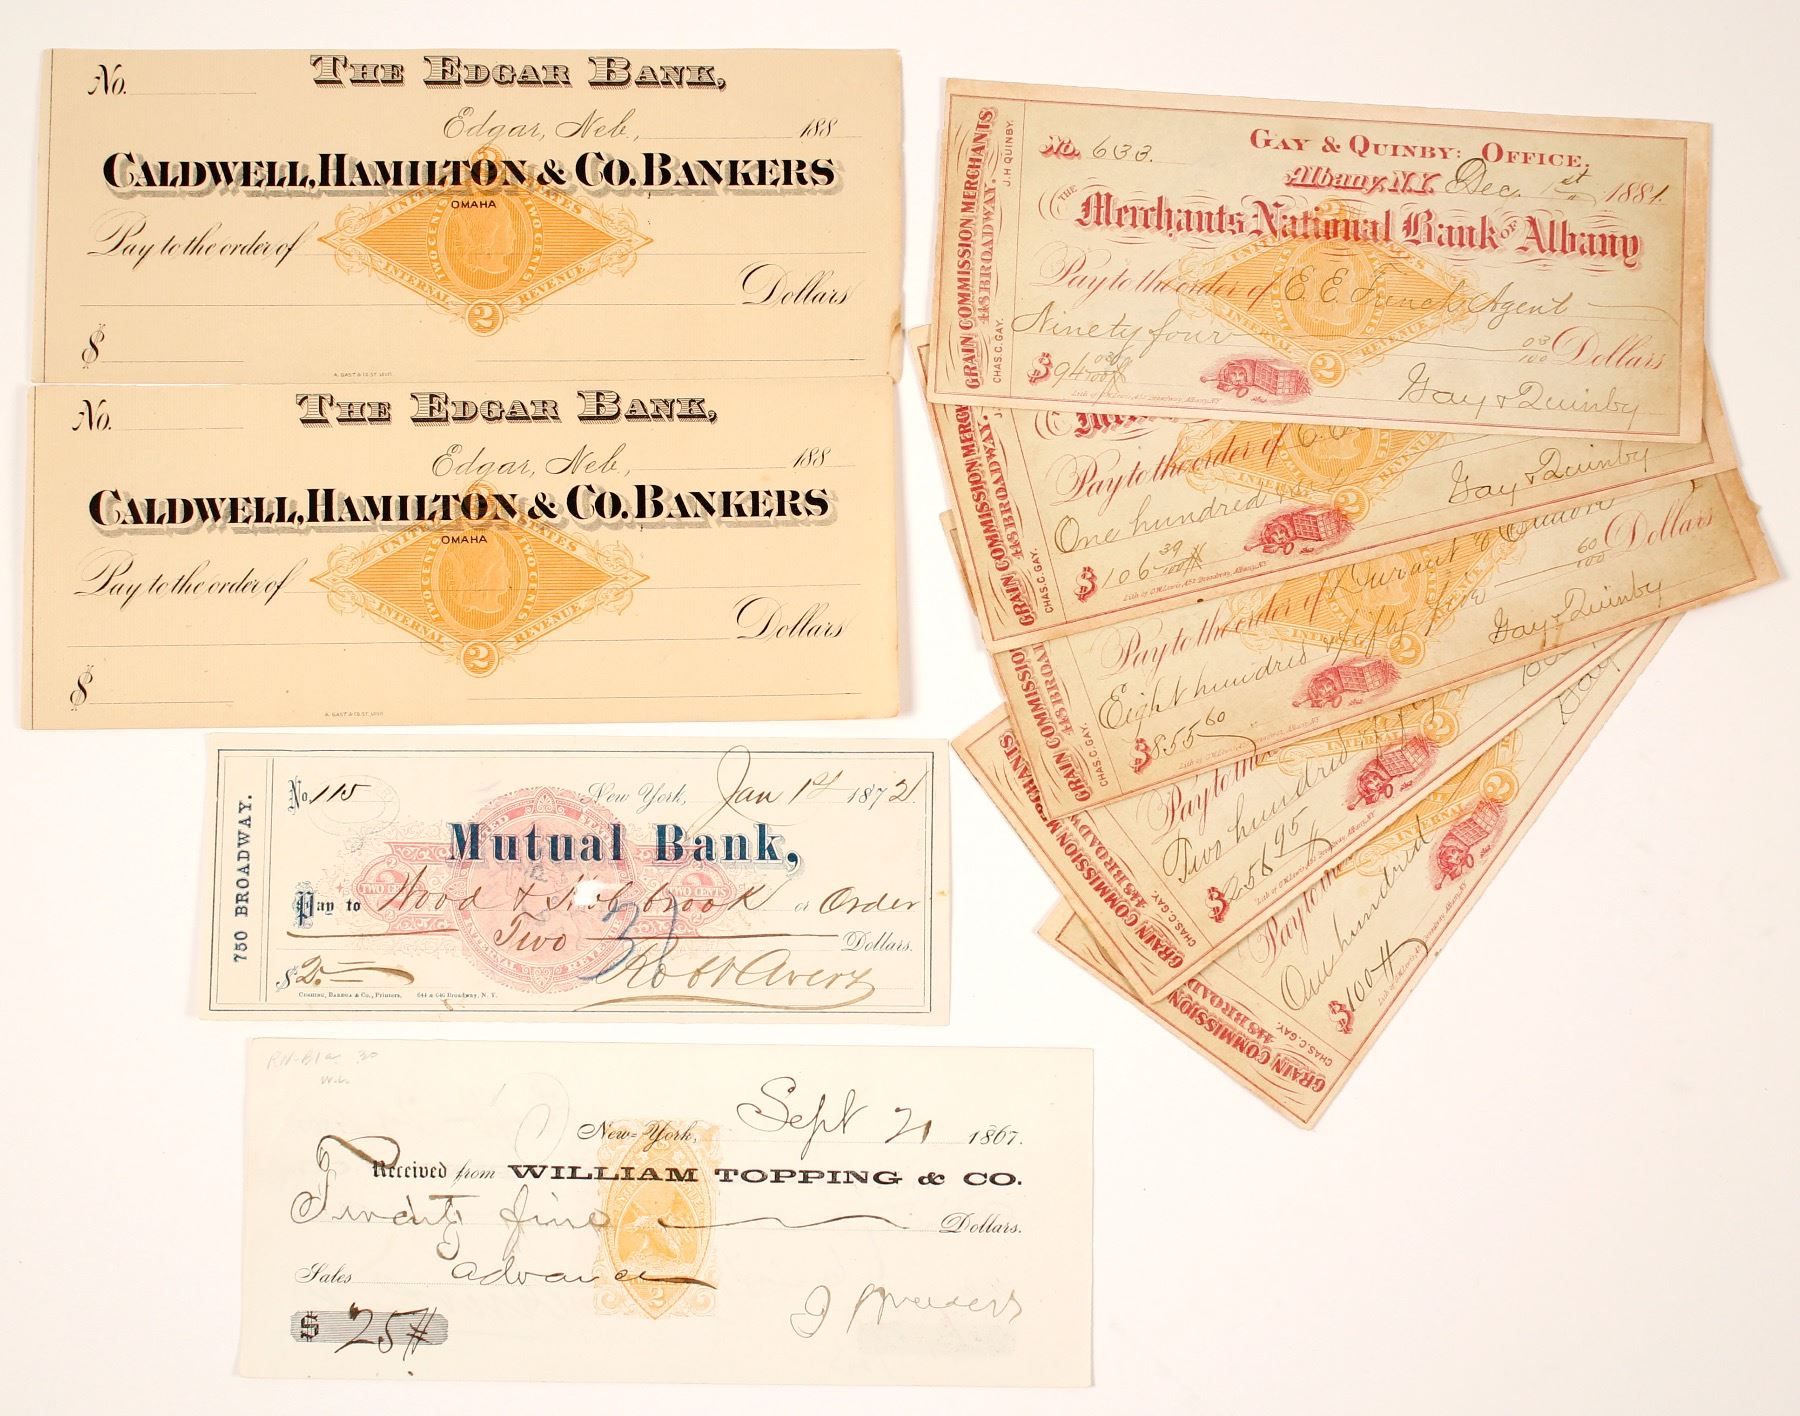 No.
THE EDGAR BANK,
Edgar, Neb., 188
CALDWELL, HAMILTON & CO. BANKERS
OMAHA
UNITED STATES
TWO CENTS TWO CENTS
Pay to the order of
INTERNAL REVENUE
2
Dollars
$
A. GAST & CO. ST. LOUIS
No.
THE EDGAR BANK,
Edgar, Neb., 188
CALDWELL, HAMILTON & CO. BANKERS
OMAHA
UNITED STATES
TWO CENTS TWO CENTS
Pay to the order of
INTERNAL REVENUE
2
Dollars
$
A. GAST & CO. ST. LOUIS
750 BROADWAY.
No. 115
New York, Jan 1st 1872
Mutual Bank,
TWO CENTS TWO CENTS
Pay to Wood & Holbrook or Order
Two Dollars.
INTERNAL REVENUE
$2.
Robt Avery
644 & 646 Broadway, N. Y.
RN-B1a 30
New-York, Sept 21 1867.
Received from WILLIAM TOPPING & CO.
Twenty five Dollars.
Sales advance
2
$ 25
GRAIN COMMISSION MERCHANTS
448 BROADWAY.
CHAS. C. GAY. J. H. QUINBY.
No. 633.
GAY & QUINBY: OFFICE.
Albany, N.Y. Dec. 1st 1881.
THE Merchants National Bank OF Albany
Pay to the order of E. E. French Agent
Ninety four 03/100 Dollars
INTERNAL REVENUE
2
$94 03/100
Gay & Quinby
Lith of Albany, N.Y.
GRAIN COMMISSION
448 BROADWAY.
CHAS. C. GAY.
Pay to the order of
One hundred six
REVENUE
2
$106 39/100
Gay & Quinby
GRAIN COMMISSION
448 BROADWAY
CHAS. C. GAY.
Pay to the order of Durant &
Eight hundred fifty five 60/100 Dollars
$855 60
Gay & Quinby
GRAIN COMMISSION MERCHANTS
448 BROADWAY
CHAS. C. GAY.
Pay to the
Two hundred fifty
INTERNAL
2
$256 95
Gay
GRAIN COMMISSION
448 BROAD
CHAS. C. GAY.
Pay to the
One hundred
INTERNAL
2
$100